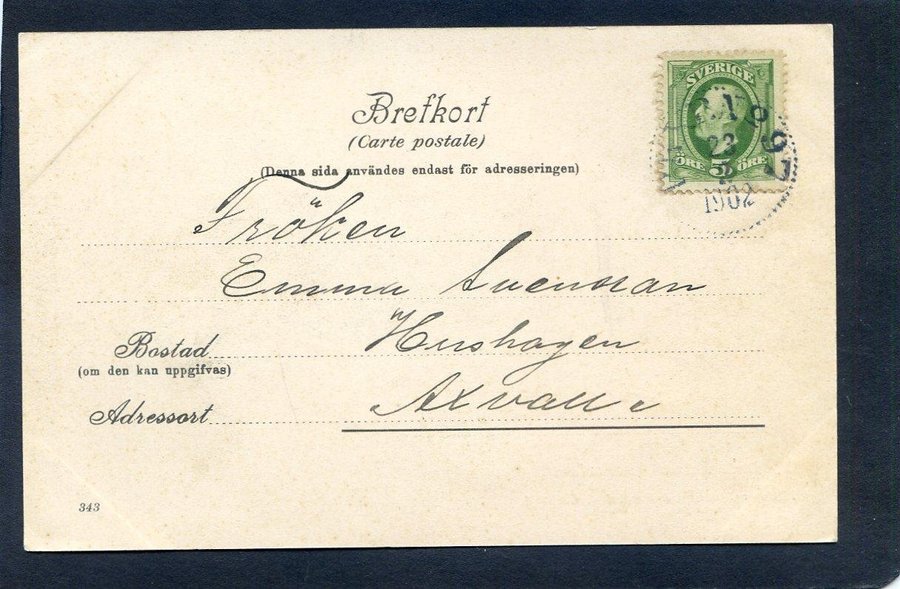 Brefkort
(Carte postale)
(Denna sida användes endast för adresseringen)
SVERIGE
ÖRE 5 ÖRE
22
1902
Fröken
Emma Svensson
Bostad
(om den kan uppgifvas)
Adressort
Axvalle
343